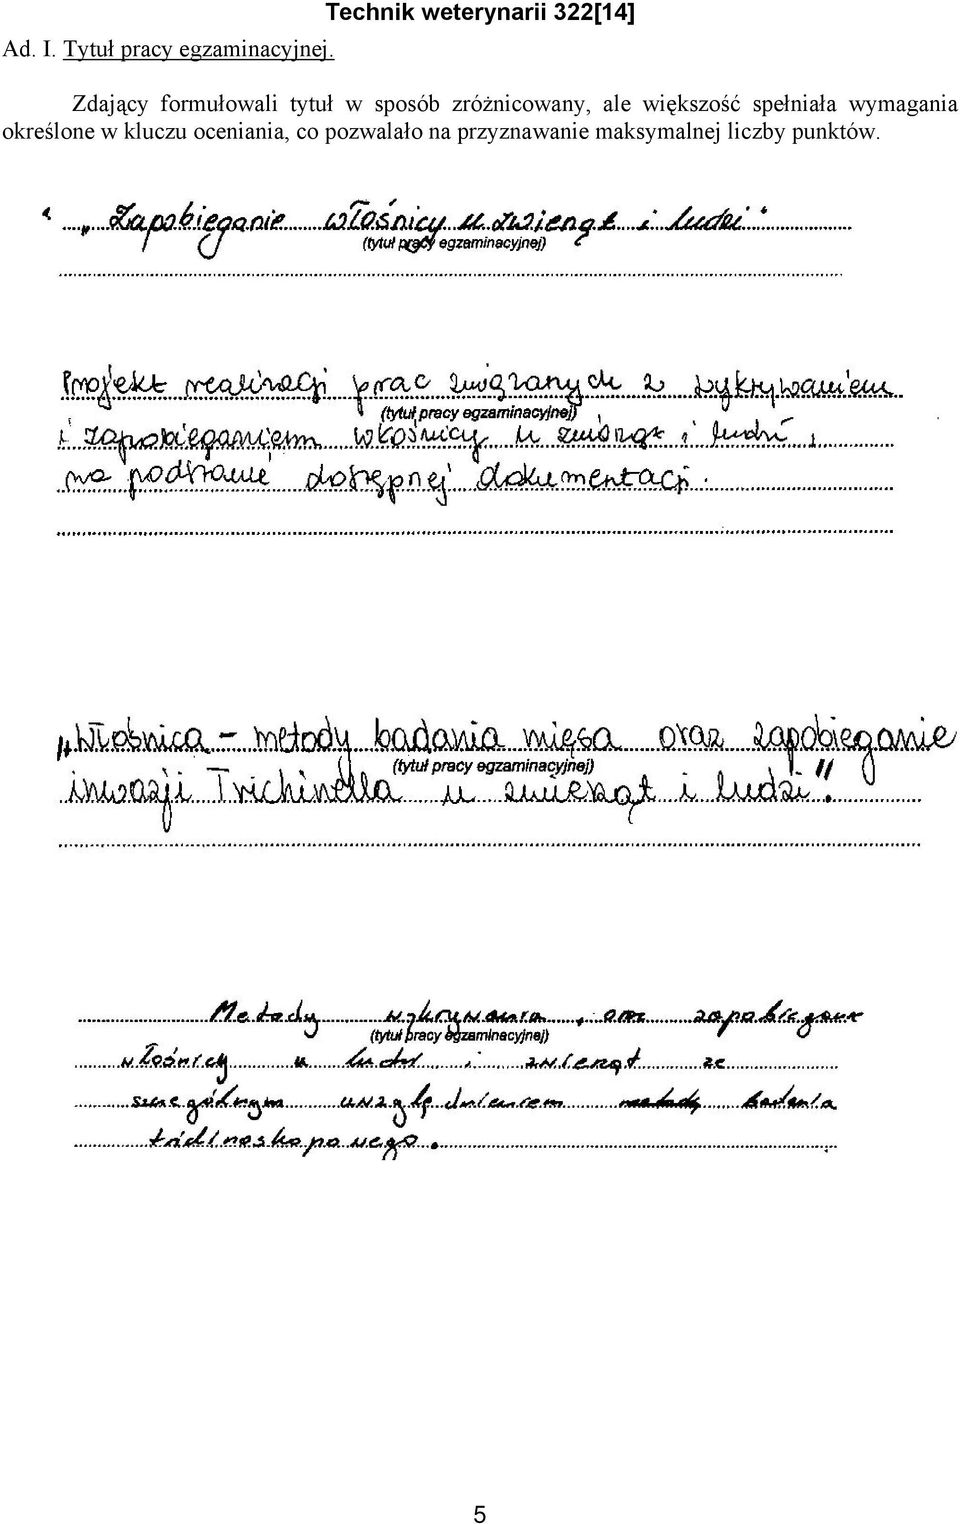 Technik weterynarii 322[14]
Ad. I. Tytuł pracy egzaminacyjnej.
Zdający formułowali tytuł w sposób zróżnicowany, ale większość spełniała wymagania
określone w kluczu oceniania, co pozwalało na przyznawanie maksymalnej liczby punktów.
„Zapobieganie włośnicy u zwierząt i ludzi“
(tytuł pracy egzaminacyjnej)
Projekt realizacji prac związanych z wykrywaniem
(tytuł pracy egzaminacyjnej)
i zapobieganiem włośnicy u zwierząt i ludzi,
na podstawie dostępnej dokumentacji.
„Włośnica – metody badania mięsa oraz zapobieganie
(tytuł pracy egzaminacyjnej)
inwazji Trichinella u zwierząt i ludzi".
Metody wykrywania, oraz zapobieganie
(tytuł pracy egzaminacyjnej)
włośnicy u ludzi i zwierząt ze
szczególnym uwzględnieniem metody badania
trichinoskopowego.
5